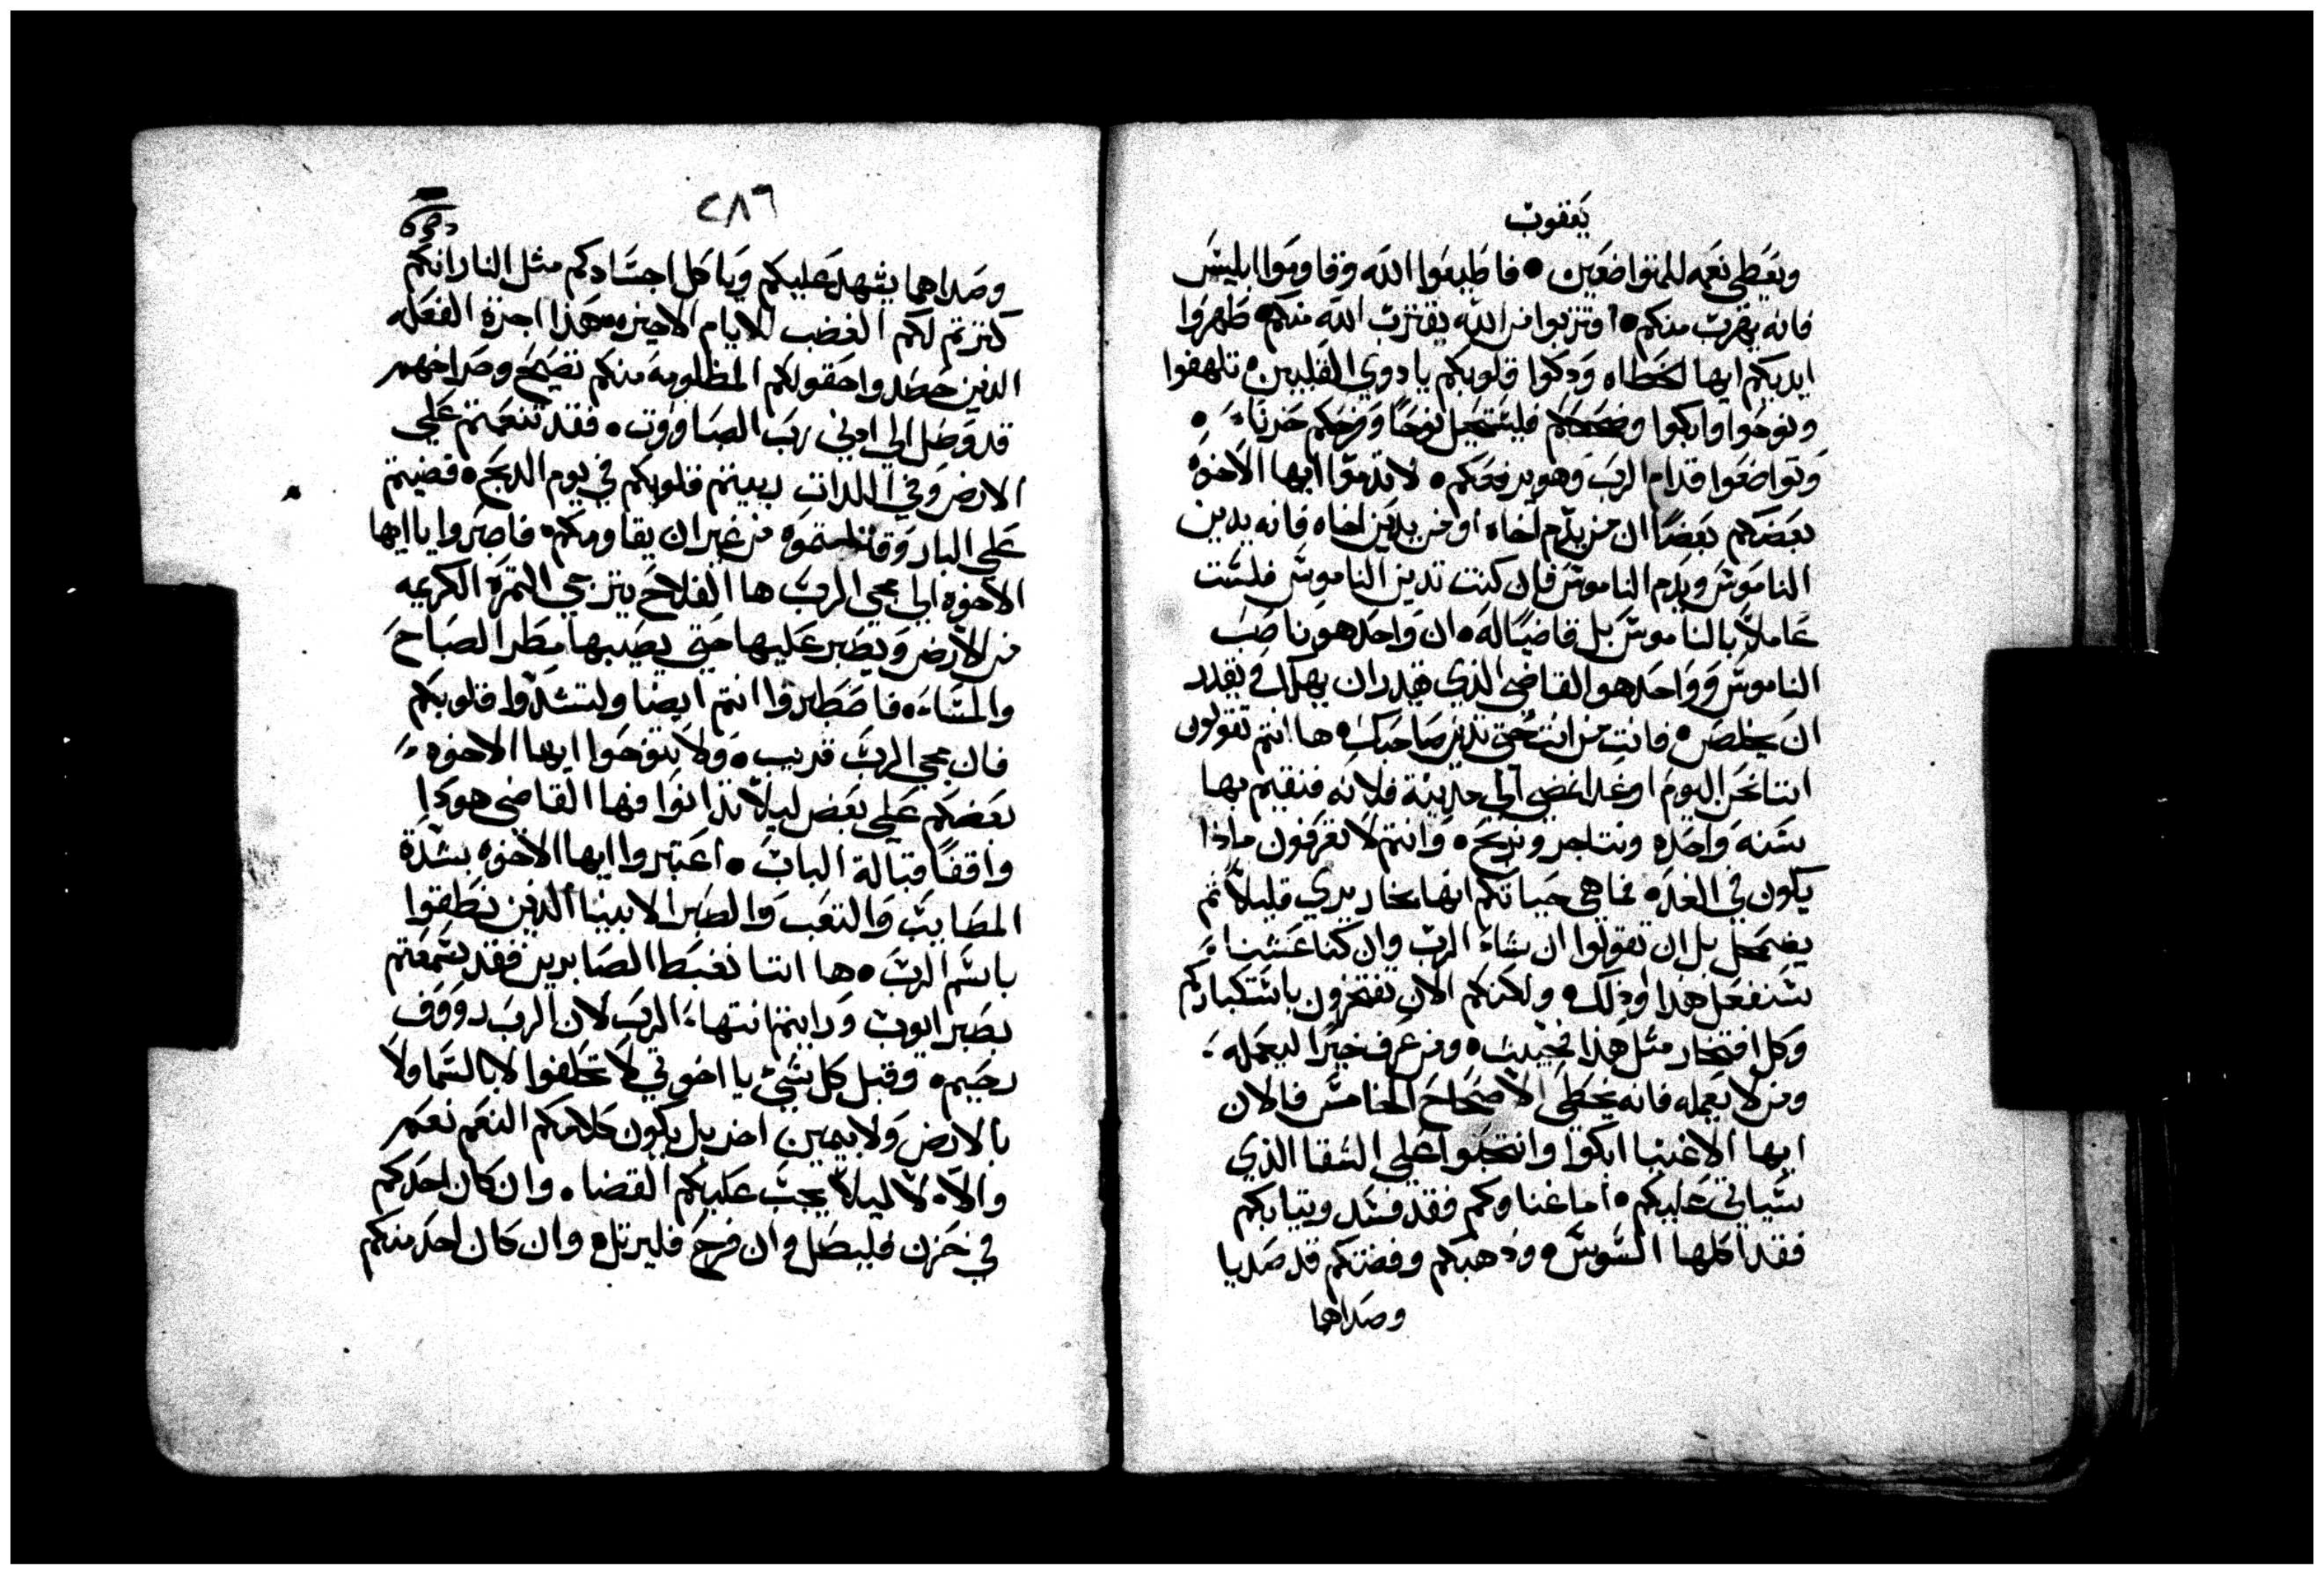 يعقوب
ويعطي نعمه للمتواضعين • فاطيعوا الله وقاوموا ابليس
فانه يهرب منكم • اقتربوا من الله يقترب الله منكم • طهروا
ايديكم ايها الخطاه وزكوا قلوبكم يا دوي القلبين • تلهفوا
ونوحوا وابكوا وضحككم فليستحيل نوحًا وفرحكم حزنًا •
وتواضعوا قدام الرب وهو يرفعكم • لا تدموا ايها الاخوه
بعضكم بعضًا ان من يدم اخاه او من يدين اخاه فانه يدين
الناموس ويدم الناموس فان كنت تدين الناموس فلست
عاملاً بالناموس بل قاضيًا له • ان واحد هو ناصب
الناموس وواحد هو القاضي الذي يقدر ان يهلك ويقدر
ان يخلص • فانت من انت حتي تدين صاحبك • ها انتم تقولون
اننا نحن اليوم او غدا نمضي الي مدينة فلانه فنقيم بها
سنه واحده ونتاجر ونربح • وانتم لا تعرفون ماذا
يكون في الغد • فما هي حياتكم انها بخار يري قليلاً ثم
يضمحل بل ان تقولوا ان شاء الرب وان كنا عشنا
سنفعل هذا او ذلك • ولكنكم الان تفتخرون باستكباركم
وكل افتخار مثل هذا فخبيث • ومن عرف خيرًا ليعمله
ومن لا يعمله فانه يخطي الاصحاح الخامس فالان
ايها الاغنيا ابكوا وانتحبوا علي الشقا الذي
سياتي عليكم • اما غناوكم فقد فسد وثيابكم
فقد اكلها السوس • ودهبكم وفضتكم قد صديا
وصداهما
٢٨٦
وصداهما يشهد عليكم وياكل اجسادكم مثل النار انكم
كنزتم لكم الغضب للايام الاخيره • هذا اجرة الفعله
الذين حصدوا حقولكم المظلومه منكم تصيح وصراخهم
قد وصل الي ادني رب الصباووت • فقد تنعمتم علي
الارض وفي اللدات ربيتم قلوبكم في يوم الدبح • قضيتم
علي البار وقتلتموه من غير ان يقاومكم • فاصبروا يا ايها
الاخوه الي مجي الرب ها الفلاح يترجي الثمرة الكريمه
من الارض ويصبر عليها حتي يصيبها مطر الصباح
والمساء • فاصطبروا انتم ايضا ولتشدوا قلوبكم
فان مجي الرب قريب • ولا تنوحوا ايها الاخوه
بعضكم علي بعض ليلا تدانوا فها القاضي هودا
واقفًا قبالة الباب • اعتبروا ايها الاخوه بشدة
المصايب والتعب والصبر الانبيا الذين نطقوا
باسم الرب • ها اننا نغبط الصابرين فقد سمعتم
بصبر ايوب ورايتم انتهاء الرب لان الرب رووف
رحيم • وقبل كل شيء يا اخوتي لا تحلفوا لا بالسما ولا
بالارض ولا بيمين اخر بل يكون كلامكم النعم نعم
والا • لا ليلا يجب عليكم القضا • وان كان احدكم
في حزن فليصل وان فرح فليرتل • وان كان احد منكم